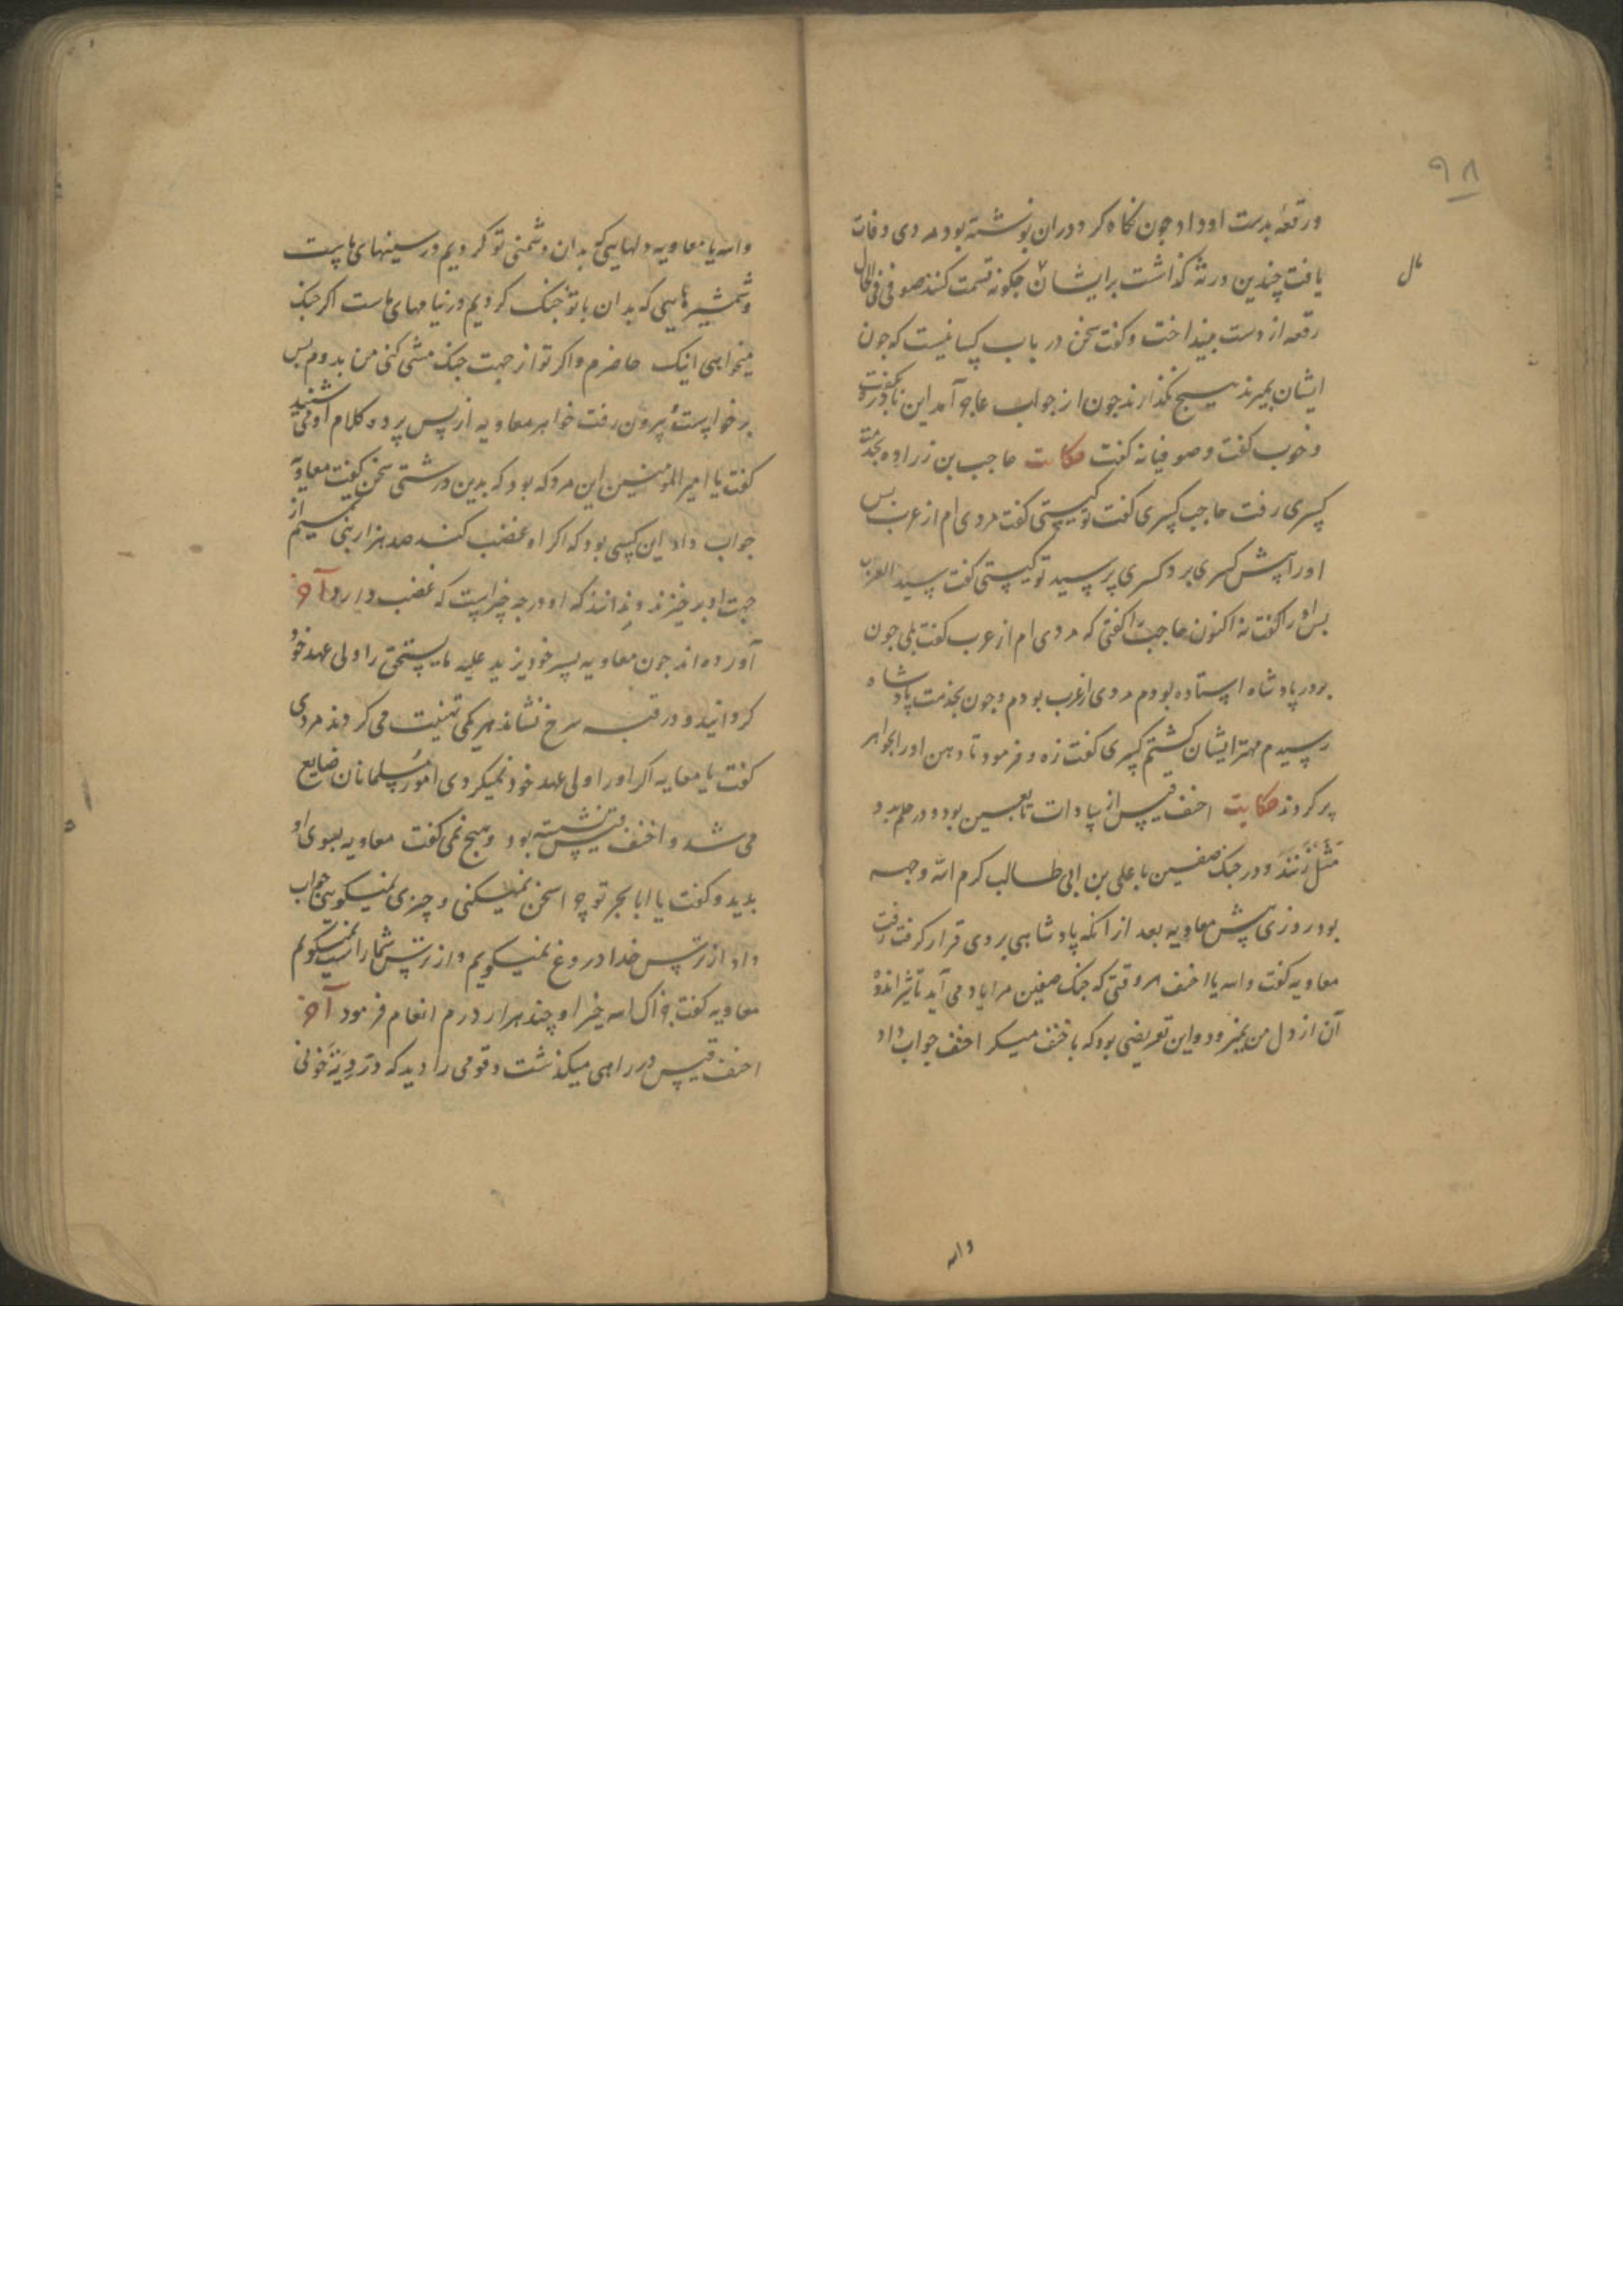 ۹۸
ورقعهٔ بدست او داد چون نکاه کرد دران نوشته بود مردی وفات
یافت چندین ورثه کذاشت برایشان چکونه قسمت کنند صوفی فی الحال
مال
رقعه از دست بینداخت و کفت سخن در باب کسانیست که چون
ایشان بمیرند هیچ نکذارند چون از جواب عاجز آمد این نادره بکفت
و خوب کفت و صوفیانه کفت حکایت حاجب بن زراره بخدمت
کسری رفت حاجب کسری کفت تو کیستی کفت مردی ام از عرب بس
او را پیش کسری برد کسری پرسید تو کیستی کفت سید العرب
بس او را کفت نه اکنون حاجب را کفتی که مردی ام از عرب کفت بلی چون
بر در پادشاه ایستاده بودم مردی از عرب بودم و چون بخدمت پادشاه
رسیدم مهتر ایشان کشتم کسری کفت زه و فرمود تا دهن او را بجواهر
پر کردند حکایت احنف قیس از سادات تابعین بود و در حلم بدو
مثل زنند و در جنک صفین با علی بن ابی طالب کرم الله وجهه
بود روزی پیش معاویه بعد از آنکه پادشاهی بروی قرار کرفت رفت
معاویه کفت والله یا احنف هر وقتی که جنک صفین مرا یاد می آید تاثیر اندوه
آن از دل من نمیرود و این تعریضی بود که با حنف میکرد احنف جواب داد
والله
والله یا معاویه دلهایی که بدان دشمنی تو کردیم در سینهای ماست
و شمشیرهایی که بدان با تو جنک کردیم در نیامهای ماست اکر جنک
میخواهی اینک حاضرم و اکر تو از جهت جنک مشی کنی من بدوم بس
برخواست و بیرون رفت خواهر معاویه از پس پرده کلام او می شنید
کفت یا امیر المومنین این مرد که بود که بدین درشتی سخن کفت معاویه
جواب داد این کسی بود که اکر او غضب کند صد هزار بنی تمیم از
جهت او برخیزند و ندانند که او در چه چیزاست که غضب دارد آخر
آورده اند چون معاویه پسر خود یزید علیه مایستحق را ولی عهد خود
کردانید و در قبه سرخ نشاند هر یکی تهنیت می کردند مردی
کفت یا معایه اکر او را ولی عهد خود نمیکردی امور مسلمانان ضایع
می شد و احنف قیس نشسته بود و هیچ نمی کفت معاویه بسوی او
بدید و کفت یا ابا بحر تو چرا سخن نمیکنی و چیزی نمیکویی جواب
داد از ترس خدا دروغ نمیکویم و از ترس شما راست نمیکویم
معاویه کفت جزاک الله خیرا و چند هزار درم انعام فرمود آخر
احنف قیس در راهی میکذشت و قومی را دید که در